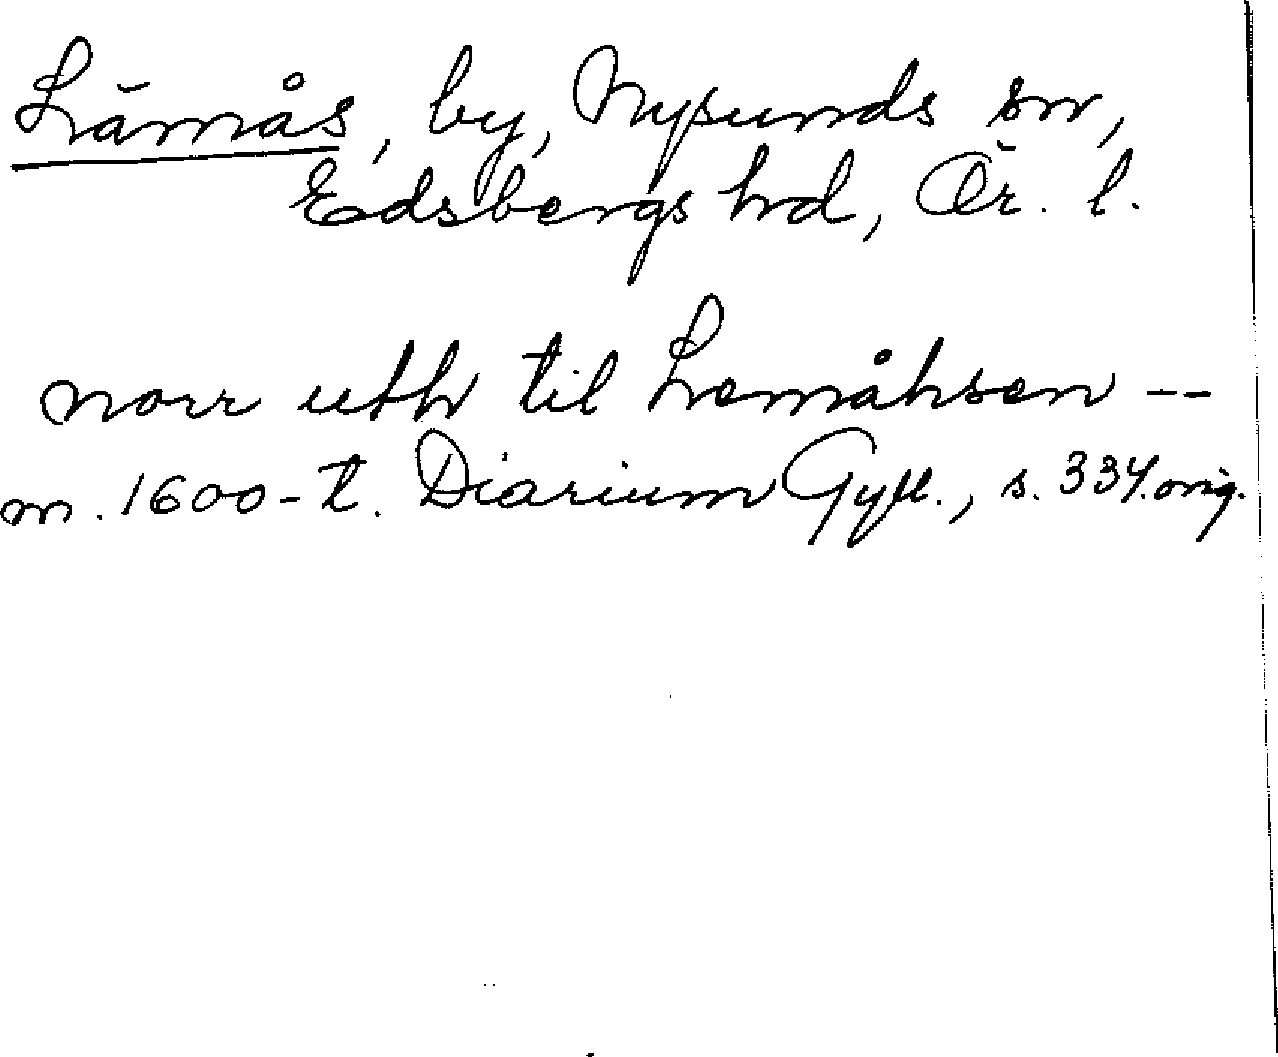 Lämås, by, Nysunds sn,
Edsbergs hd, Ör. l.
norr uth til Lemåhsen --
m. 1600-t. Diarium Gyll., s. 334. orig.